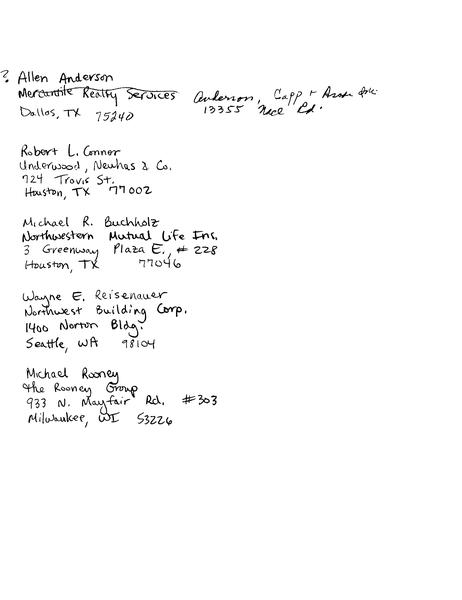 ? Allen Anderson
Mercantile Realty Services Anderson, Capp +
Dallas, TX 75240 13355 Noel Rd.
Robert L. Connor
Underwood, Neuhas & Co.
724 Travis St.
Houston, TX 77002
Michael R. Buchholz
Northwestern Mutual Life Ins.
3 Greenway Plaza E, # 228
Houston, TX 77046
Wayne E. Reisenauer
Northwest Building Corp.
1400 Norton Bldg.
Seattle, WA 98104
Michael Rooney
The Rooney Group
933 N. Mayfair Rd. #303
Milwaukee, WI 53226